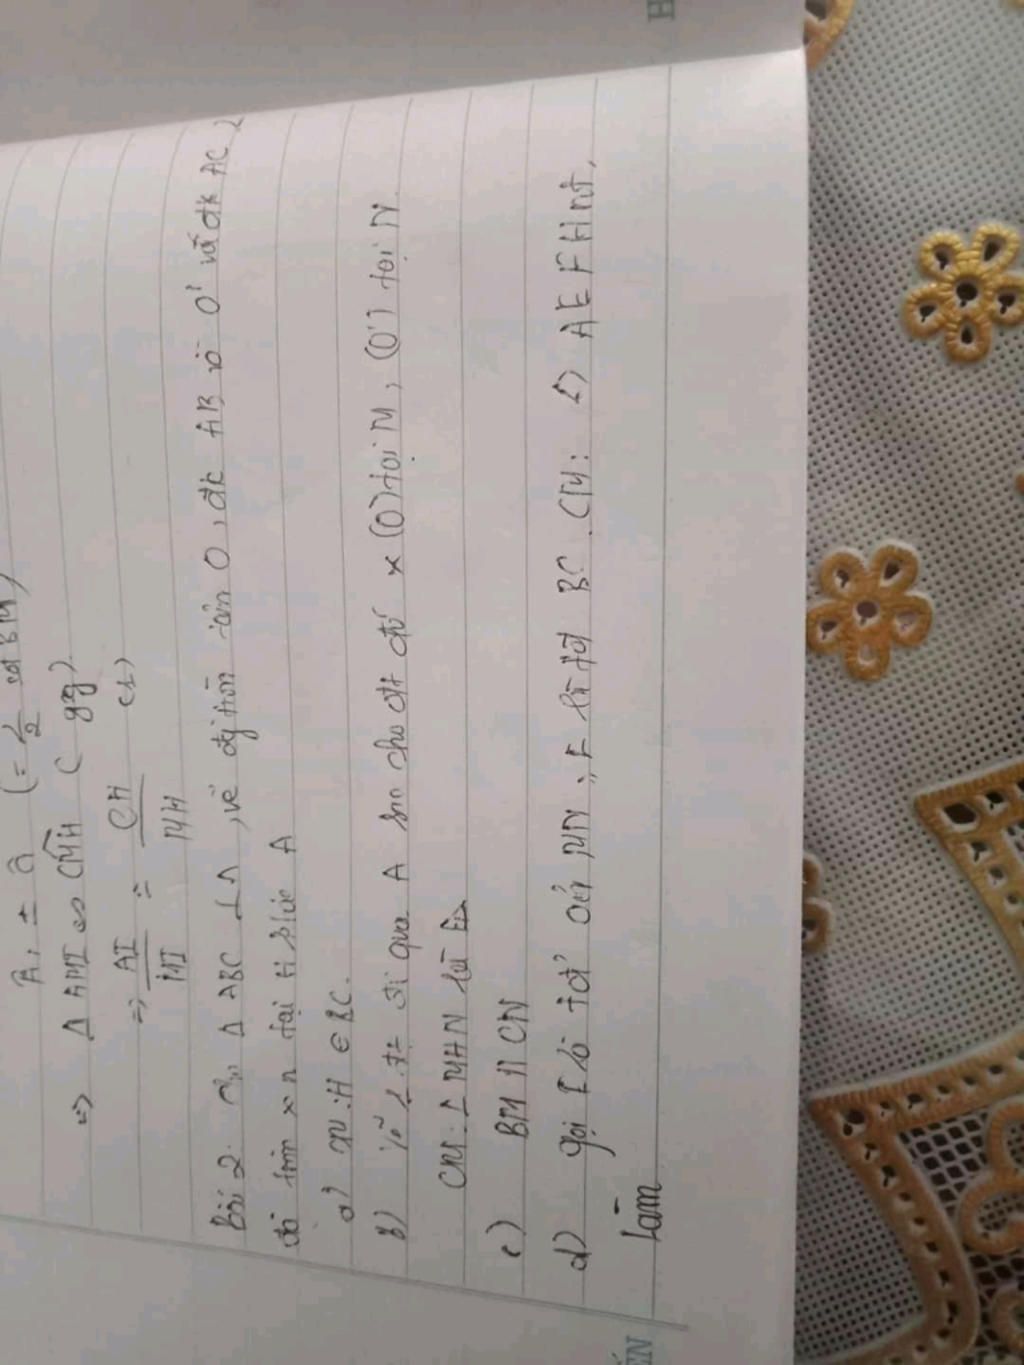 A₁ = (= 1/2 sđ BM)
=> Δ AMI ∽ CMH ( gg)
=> AI/MI = CH/MH (1)
Bài 2: Δ ABC ⊥ A, vẽ đg tròn tâm O, đk AB và O' và đk AC 2
đg tròn x n tại H khác A
a) CM: H ∈ BC.
b) Vẽ 1 đt đi qua A sao cho đt đó x (O) tại M, (O') tại N
CM: Δ MHN là
c) BM // CN
d) gọi E là tđ của MN, F là tđ BC. CM: AEFH nt.
Làm
H
ẾN